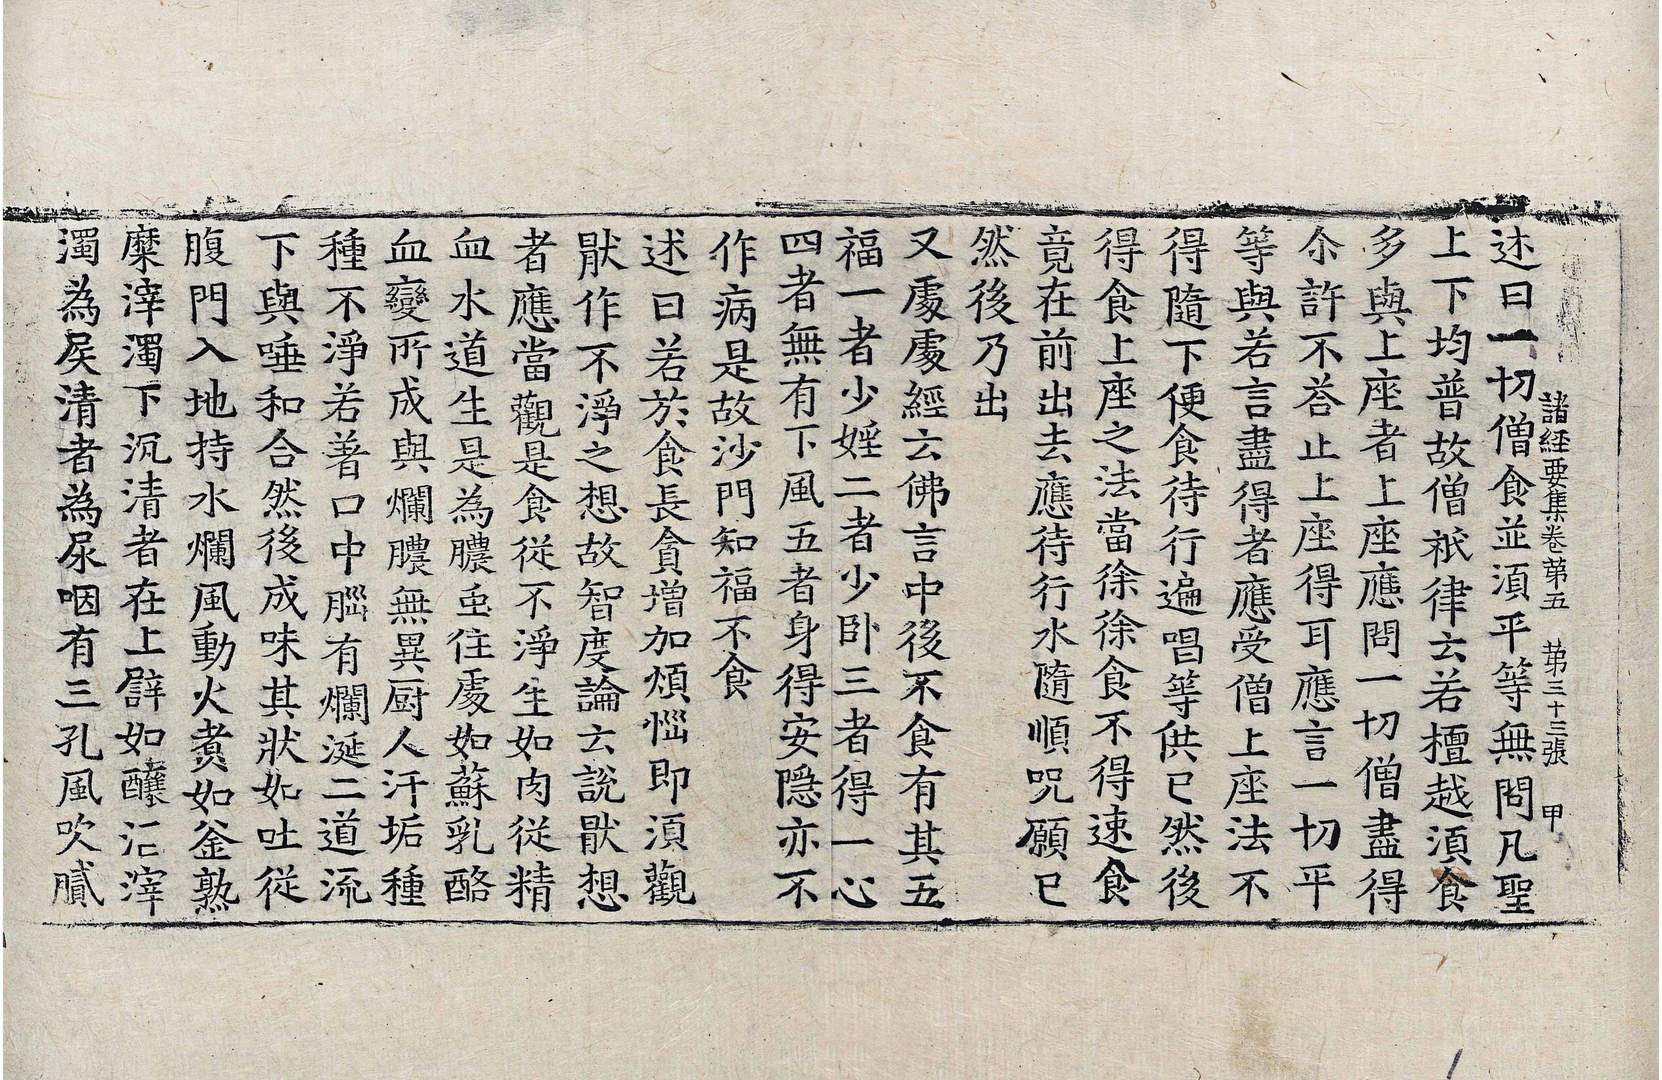 諸経要集卷第五 第三十三張 甲
述曰一切僧食並湏平等無問凡聖
上下均普故僧祇律云若檀越湏食
多與上座者上座應問一切僧盡得
尒許不荅止上座得耳應言一切平
等與若言盡得者應受僧上座法不
得隨下便食待行遍唱等供已然後
得食上座之法當徐徐食不得速食
竟在前出去應待行水隨順呪願已
然後乃出
又處處經云佛言中後不食有其五
福一者少婬二者少卧三者得一心
四者無有下風五者身得安隱亦不
作病是故沙門知福不食
述曰若於食長貪增加煩惱即湏觀
猒作不淨之想故智度論云說猒想
者應當觀是食從不淨生如肉從精
血水道生是為膿虫住處如蘇乳酪
血變所成與爛膿無異厨人汗垢種
種不淨若著口中腦有爛涎二道流
下與唾和合然後成味其狀如吐從
腹門入地持水爛風動火煑如釜熟
糜滓濁下沉清者在上譬如釀酒滓
濁為屎清者為尿咽有三孔風吹膩